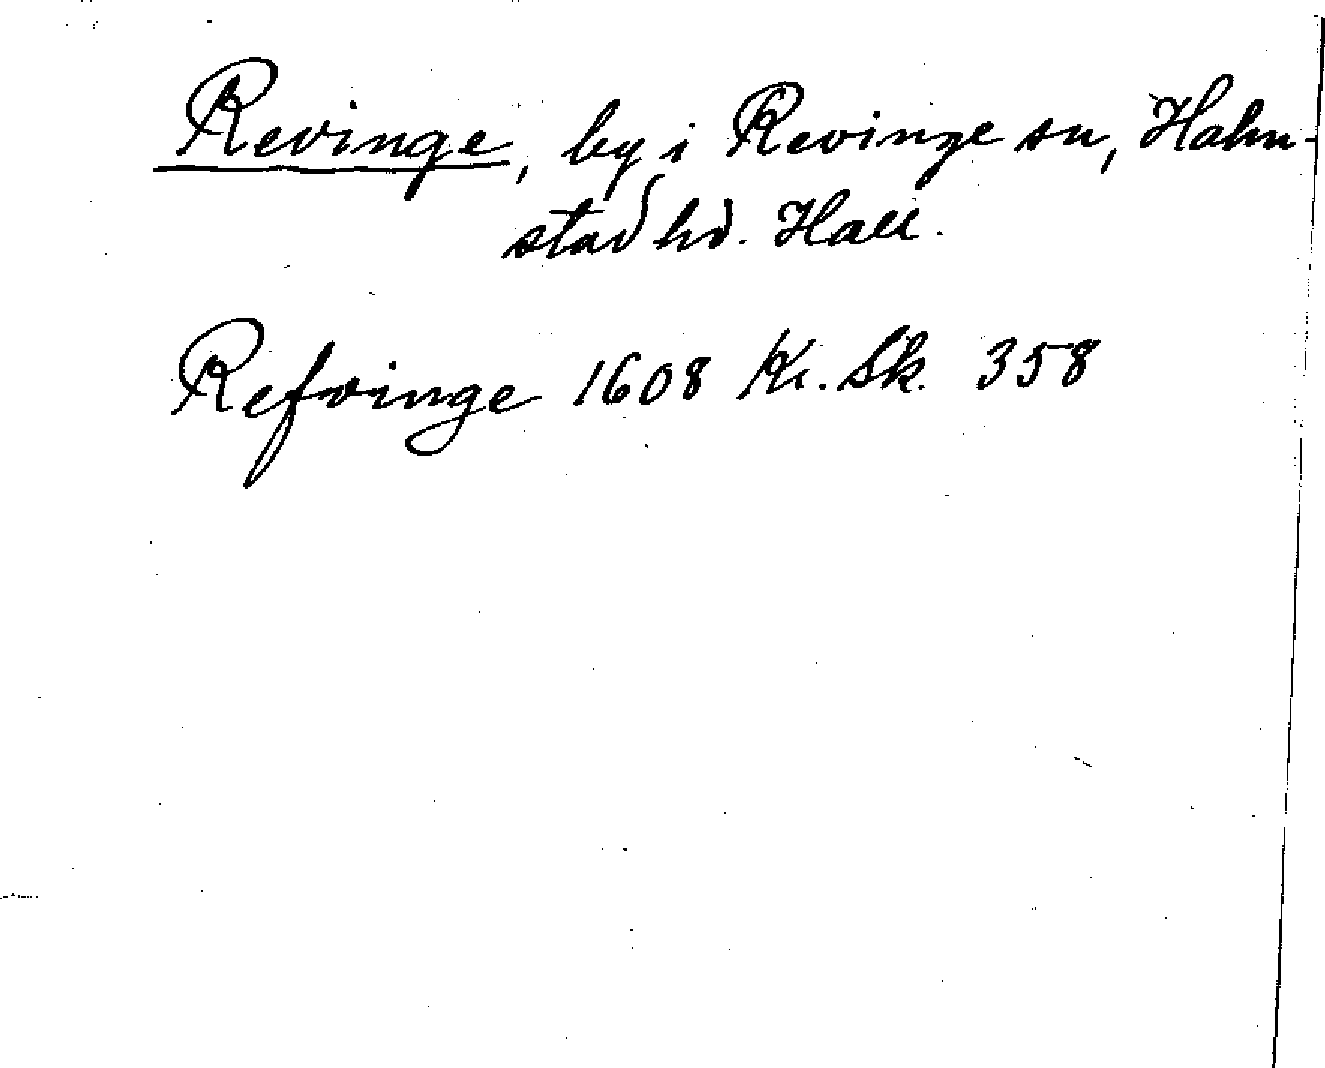 Revinge, by i Revinge sn, Halm-
stad hd. Hall.
Refvinge 1608 Kr. Sk. 358